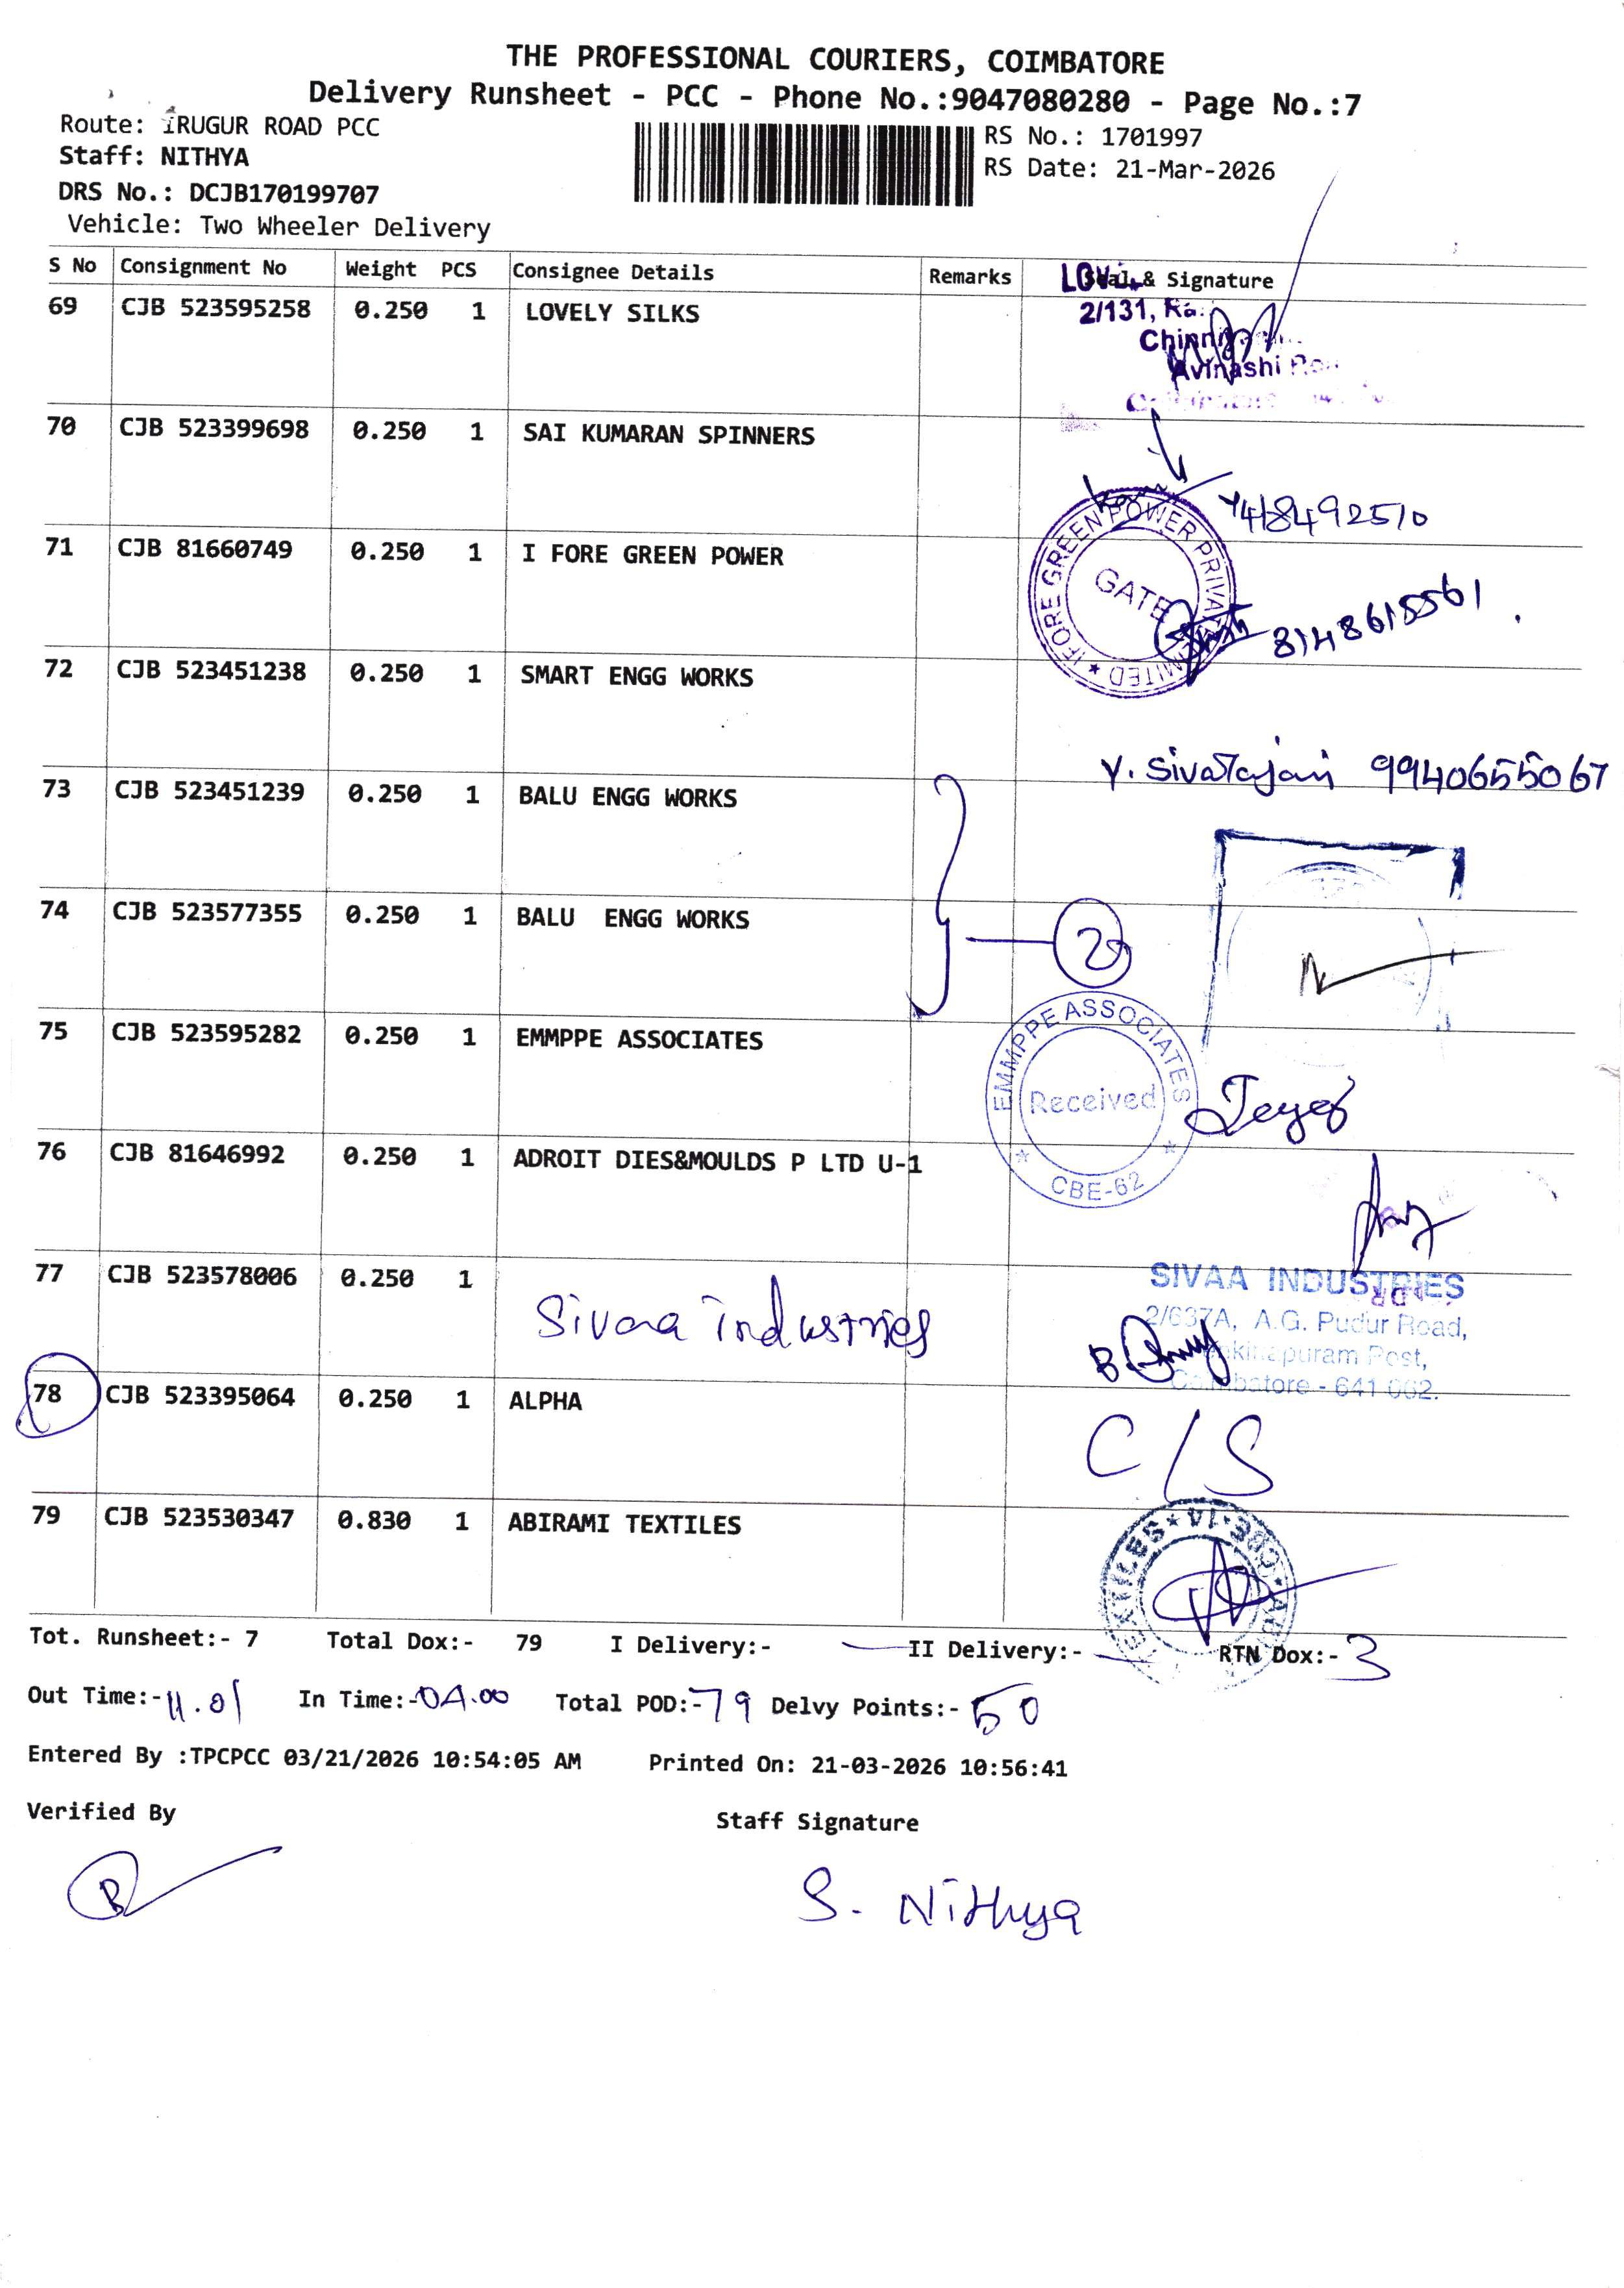 THE PROFESSIONAL COURIERS, COIMBATORE
Delivery Runsheet - PCC - Phone No.:9047080280 - Page No.:7
Route: IRUGUR ROAD PCC
Staff: NITHYA
DRS No.: DCJB170199707
Vehicle: Two Wheeler Delivery
RS No.: 1701997
RS Date: 21-Mar-2026
S No Consignment No Weight PCS Consignee Details Remarks Seal & Signature
69 CJB 523595258 0.250 1 LOVELY SILKS
2/131,
Avinashi
70 CJB 523399698 0.250 1 SAI KUMARAN SPINNERS
71 CJB 81660749 0.250 1 I FORE GREEN POWER
IFORE GREEN POWER PRIVATE LIMITED
GATE
8148615561
72 CJB 523451238 0.250 1 SMART ENGG WORKS
Y. Sivarajan 9940655067
73 CJB 523451239 0.250 1 BALU ENGG WORKS
74 CJB 523577355 0.250 1 BALU ENGG WORKS
75 CJB 523595282 0.250 1 EMMPPE ASSOCIATES
EMMPPE ASSOCIATES
Received
CBE-62
76 CJB 81646992 0.250 1 ADROIT DIES&MOULDS P LTD U-1
77 CJB 523578006 0.250 1 Sivaa industries
SIVAA INDUSTRIES
2/637A, A.G. Pudur Road,
Post,
Coimbatore - 641 062.
78 CJB 523395064 0.250 1 ALPHA
C/S
79 CJB 523530347 0.830 1 ABIRAMI TEXTILES
Tot. Runsheet:- 7 Total Dox:- 79 I Delivery:- II Delivery:- RTN Dox:- 3
Out Time:- 11.01 In Time:- 04.00 Total POD:- 79 Delvy Points:- 50
Entered By :TPCPCC 03/21/2026 10:54:05 AM Printed On: 21-03-2026 10:56:41
Verified By Staff Signature
S. Nithya